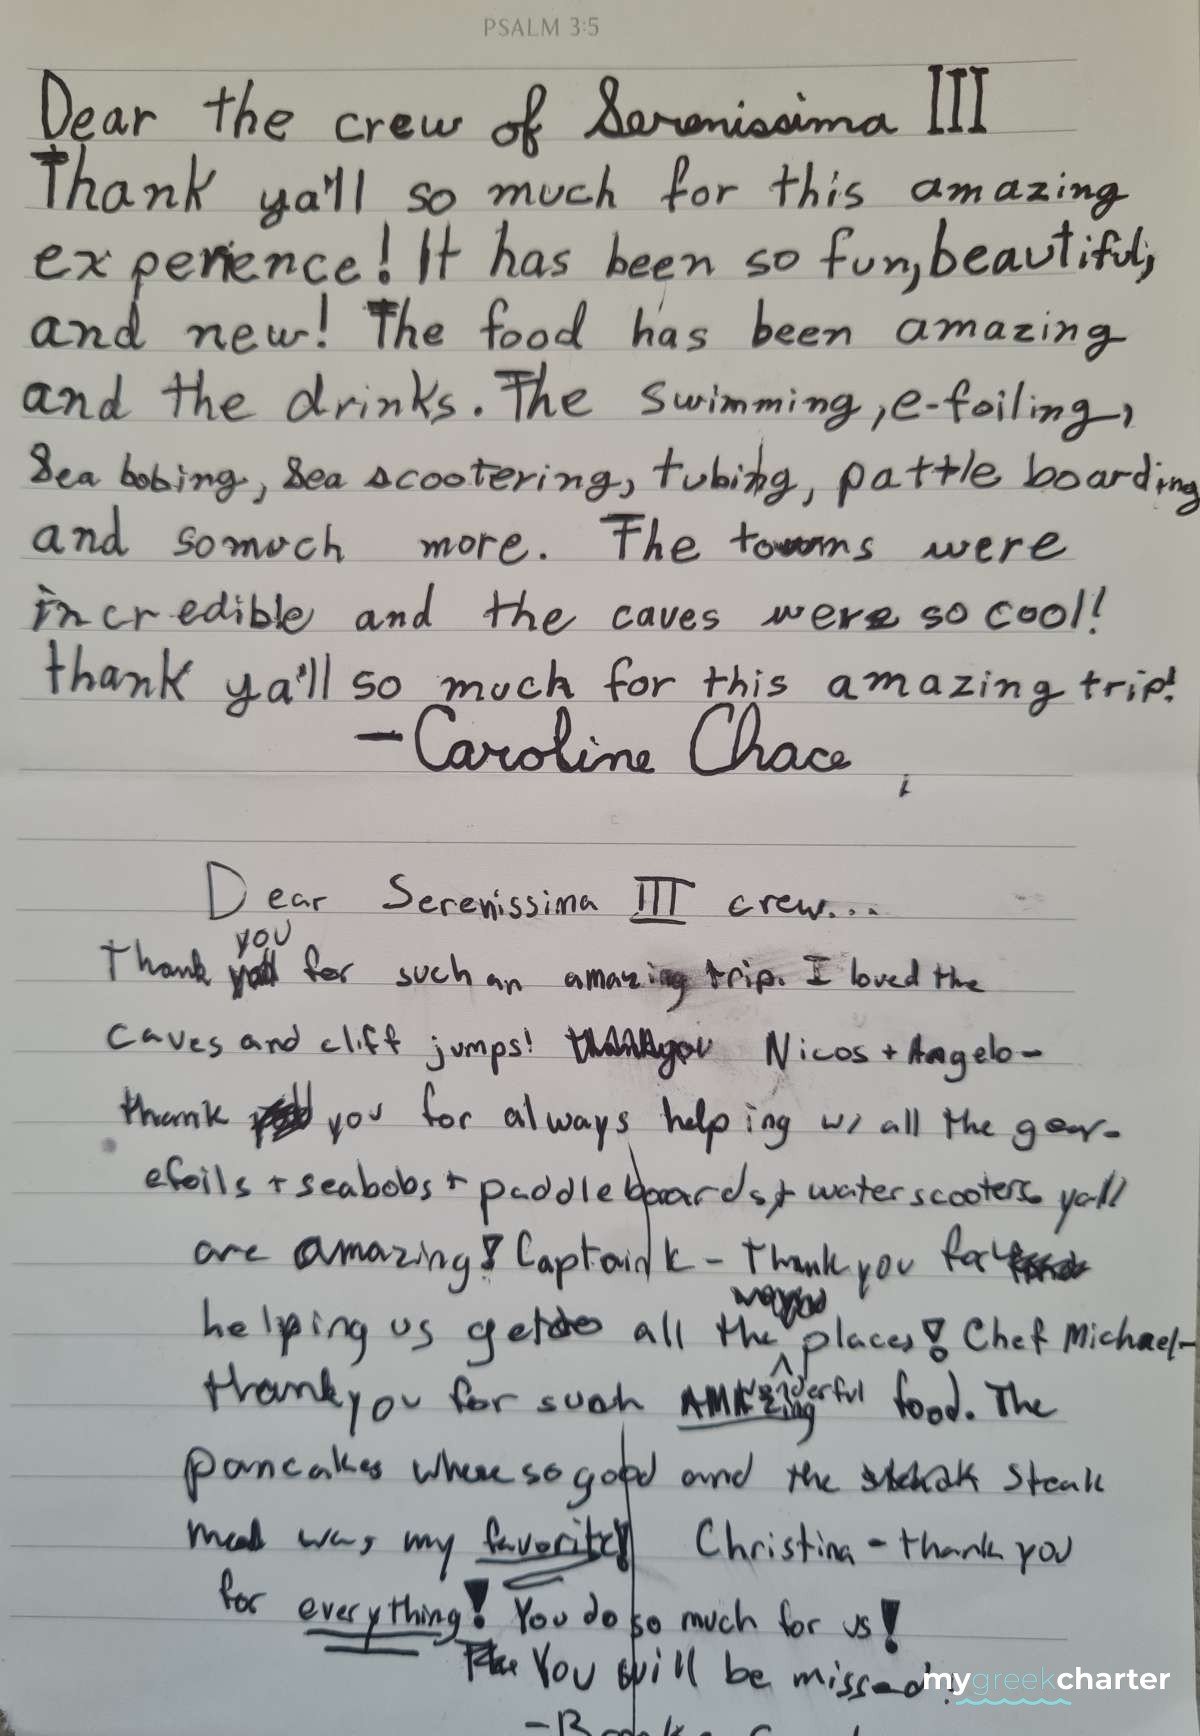 PSALM 3:5
Dear the crew of Serenissima III
Thank ya'll so much for this amazing
experience! It has been so fun, beautiful,
and new! The food has been amazing
and the drinks. The swimming, e-foiling,
Sea bobing, Sea scootering, tubing, pattle boarding
and somuch more. The towns were
incredible and the caves were so cool!
thank ya'll so much for this amazing trip!
- Caroline Chace
Dear Serenissima III crew...
you
Thank for such an amazing trip. I loved the
caves and cliff jumps! Nicos + Angelo-
thank you for always helping w/ all the gear-
efoils + seabobs + paddleboards + water scooters yall
are amazing! Captain K - Thank you for
helping us get to all the places! Chef Michael-
thank you for such AMAzing wonderful food. The
pancakes where so good and the steak
meal was my favorite! Christina - thank you
for everything! You do so much for us!
You will be missed!
mygreekcharter